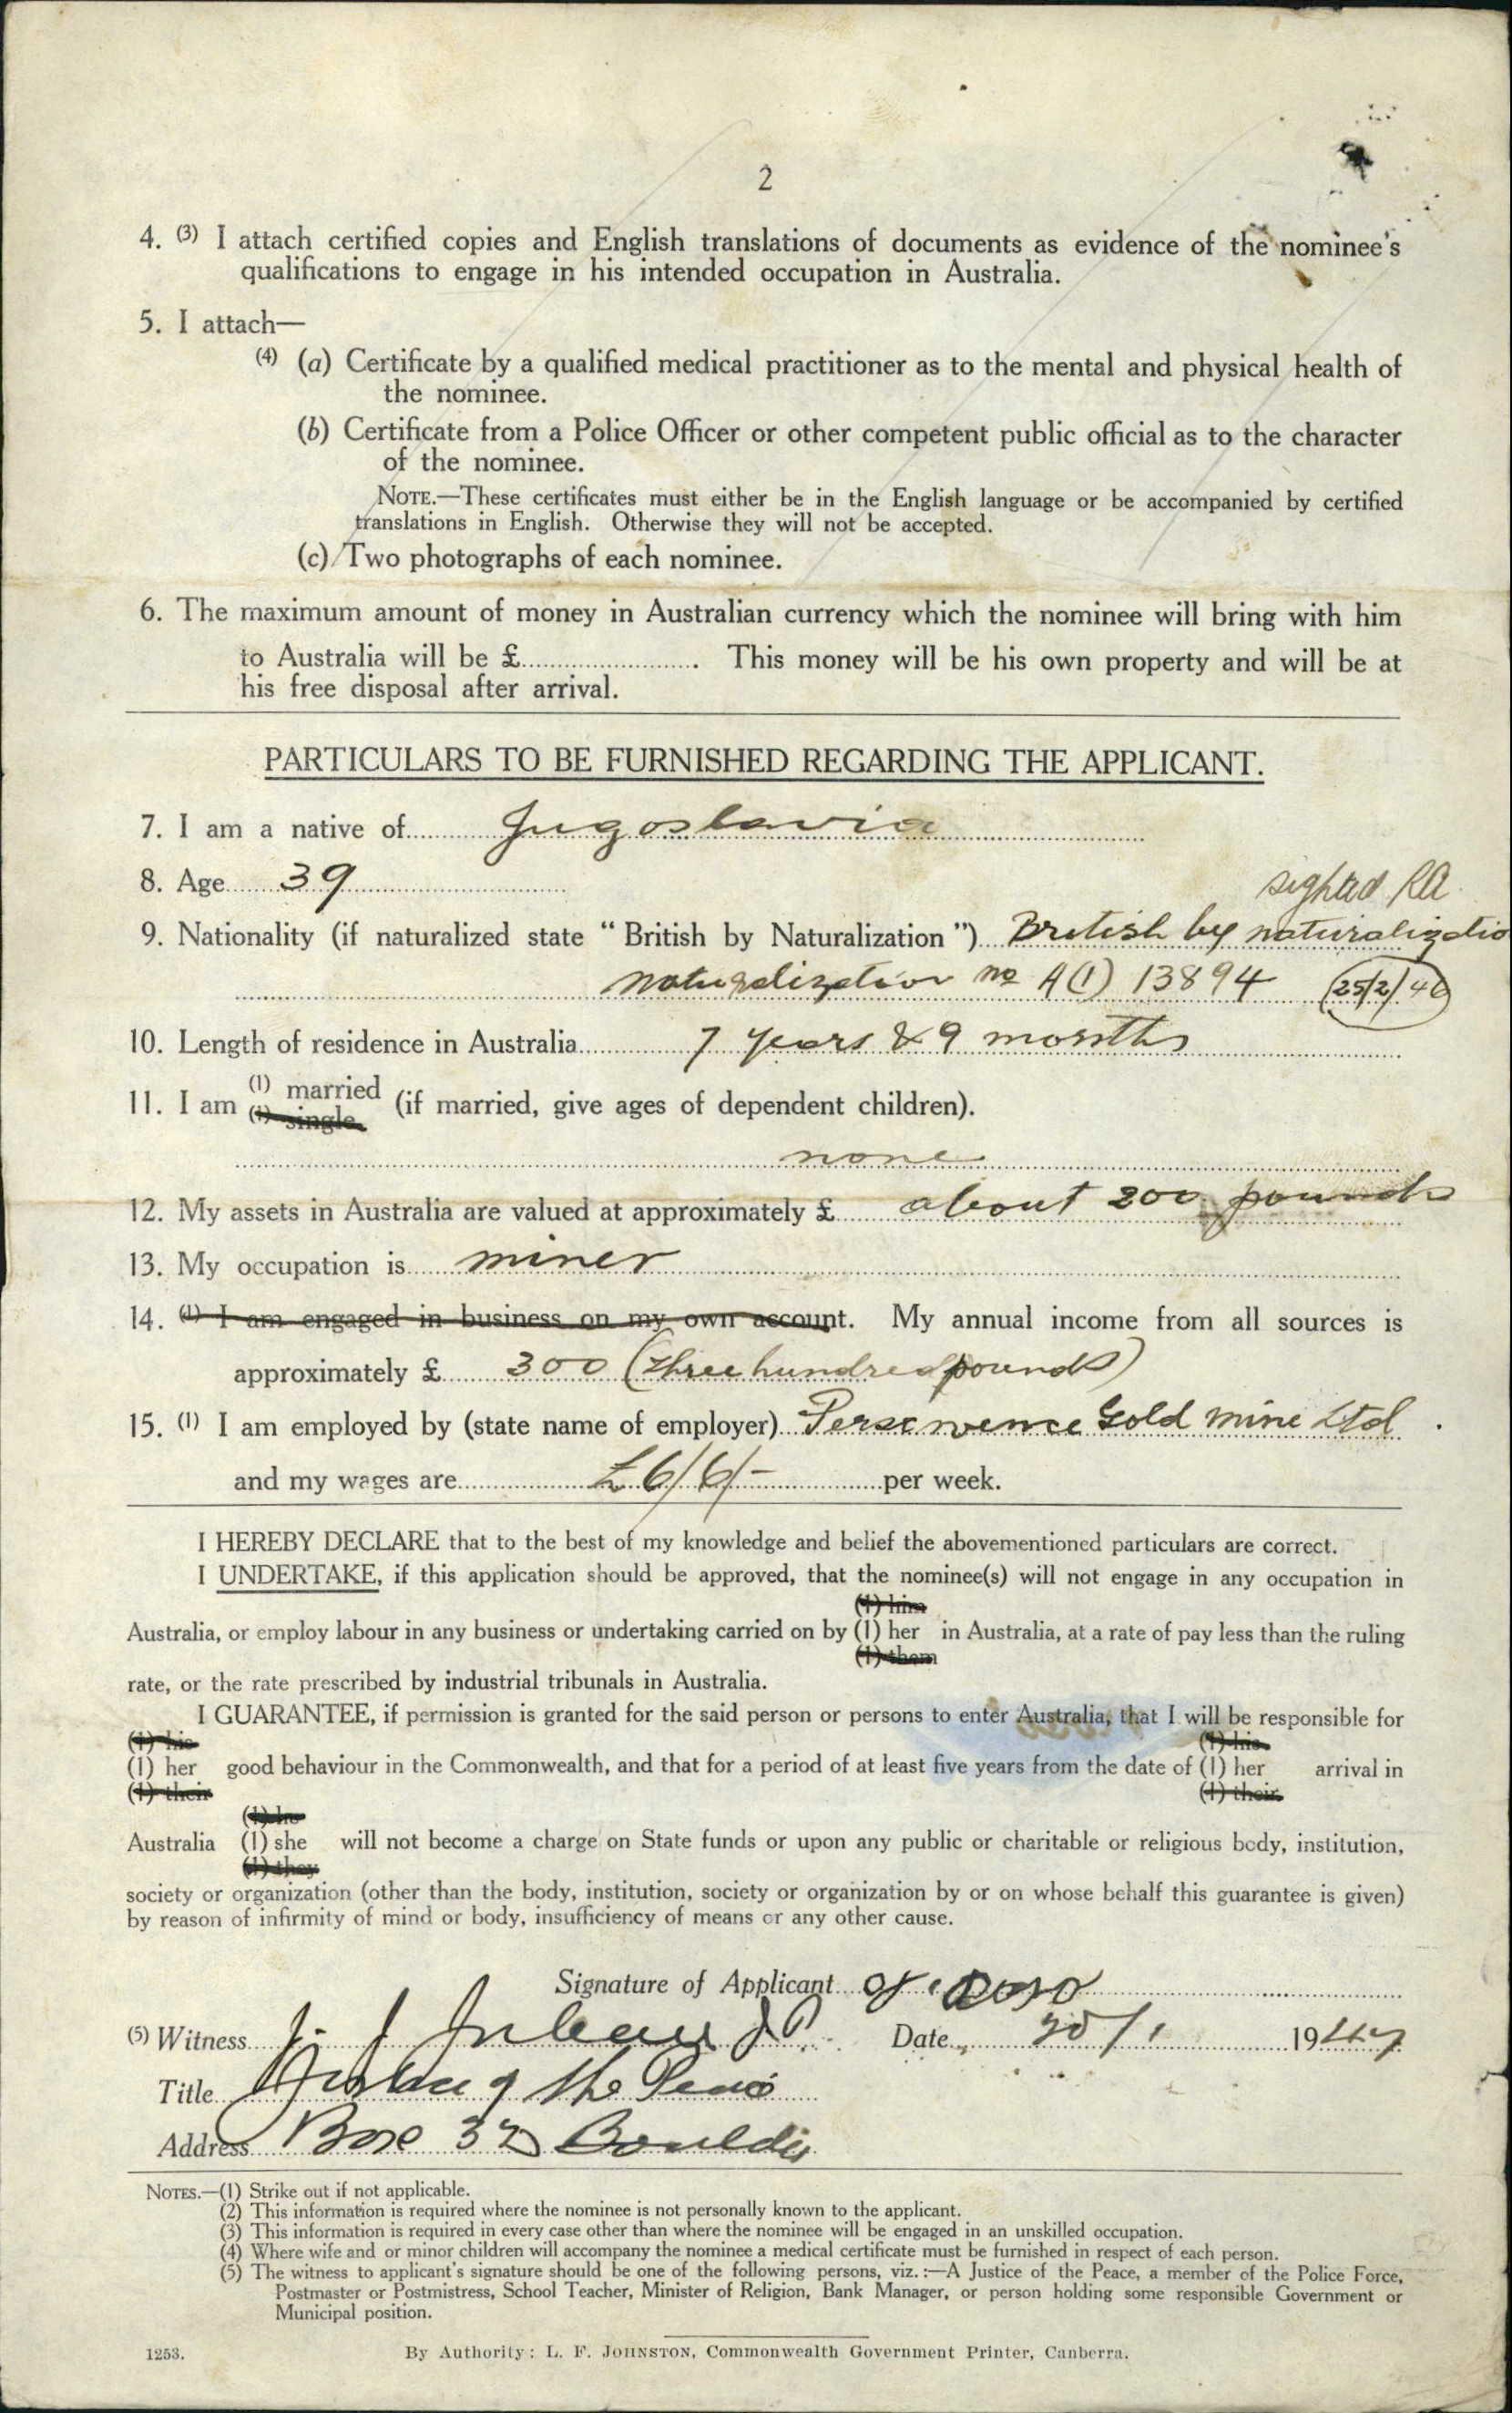 2
4. (3) I attach certified copies and English translations of documents as evidence of the nominee's
qualifications to engage in his intended occupation in Australia.
5. I attach—
(4) (a) Certificate by a qualified medical practitioner as to the mental and physical health of
the nominee.
(b) Certificate from a Police Officer or other competent public official as to the character
of the nominee.
NOTE.—These certificates must either be in the English language or be accompanied by certified
translations in English. Otherwise they will not be accepted.
(c) Two photographs of each nominee.
6. The maximum amount of money in Australian currency which the nominee will bring with him
to Australia will be £.......................... This money will be his own property and will be at
his free disposal after arrival.
PARTICULARS TO BE FURNISHED REGARDING THE APPLICANT.
7. I am a native of Jugoslavia
8. Age 39
sighted RA
9. Nationality (if naturalized state "British by Naturalization") British by naturalizatio
naturalization no A(1) 13894 (25/2/46)
10. Length of residence in Australia 7 years & 9 months
11. I am (1) married (if married, give ages of dependent children).
(1) single
none
12. My assets in Australia are valued at approximately £ about 200 pounds
13. My occupation is miner
14. (1) I am engaged in business on my own account. My annual income from all sources is
approximately £ 300 (three hundred pounds)
15. (1) I am employed by (state name of employer) Gold mine Ltd.
and my wages are £6/6/- per week.
I HEREBY DECLARE that to the best of my knowledge and belief the abovementioned particulars are correct.
I UNDERTAKE, if this application should be approved, that the nominee(s) will not engage in any occupation in
(1) him
Australia, or employ labour in any business or undertaking carried on by (1) her in Australia, at a rate of pay less than the ruling
(1) them
rate, or the rate prescribed by industrial tribunals in Australia.
I GUARANTEE, if permission is granted for the said person or persons to enter Australia, that I will be responsible for
(1) his (1) his
(1) her good behaviour in the Commonwealth, and that for a period of at least five years from the date of (1) her arrival in
(1) their (1) their
(1) he
Australia (1) she will not become a charge on State funds or upon any public or charitable or religious body, institution,
(1) they
society or organization (other than the body, institution, society or organization by or on whose behalf this guarantee is given)
by reason of infirmity of mind or body, insufficiency of means or any other cause.
Signature of Applicant
(5) Witness J.P. Date /1 1947
Title Justice of the Peace
Address Box 32 Boulder
NOTES.—(1) Strike out if not applicable.
(2) This information is required where the nominee is not personally known to the applicant.
(3) This information is required in every case other than where the nominee will be engaged in an unskilled occupation.
(4) Where wife and or minor children will accompany the nominee a medical certificate must be furnished in respect of each person.
(5) The witness to applicant's signature should be one of the following persons, viz.:—A Justice of the Peace, a member of the Police Force,
Postmaster or Postmistress, School Teacher, Minister of Religion, Bank Manager, or person holding some responsible Government or
Municipal position.
1253. By Authority: L. F. JOHNSTON, Commonwealth Government Printer, Canberra.